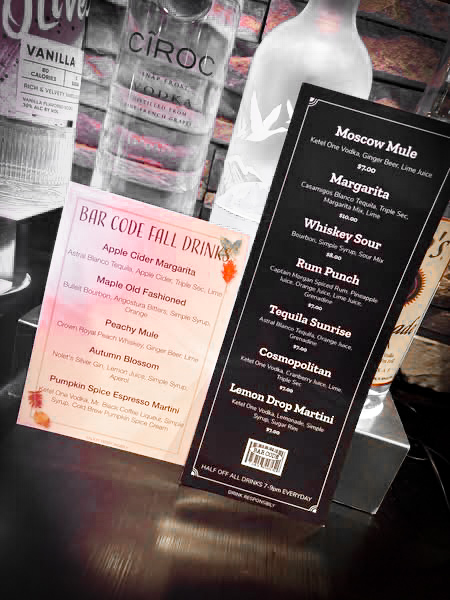 VANILLA
80
CALORIES
RICH & VELVETY
VANILLA FLAVORED
30% ALC BY VOL
CÎROC
SNAP FROST
VODKA
DISTILLED FROM
FINE FRENCH GRAPES
BAR CODE FALL DRINKS
Apple Cider Margarita
Astral Blanco Tequila, Apple Cider, Triple Sec, Lime
Maple Old Fashioned
Bulleit Bourbon, Angostura Bitters, Simple Syrup,
Orange
Peachy Mule
Crown Royal Peach Whiskey, Ginger Beer, Lime
Autumn Blossom
Nolet's Silver Gin, Lemon Juice, Simple Syrup,
Aperol
Pumpkin Spice Espresso Martini
Ketel One Vodka, Mr. Black Coffee Liqueur, Simple
Syrup, Cold Brew Pumpkin Spice Cream
Moscow Mule
Ketel One Vodka, Ginger Beer, Lime Juice
$7.00
Margarita
Casamigos Blanco Tequila, Triple Sec,
Margarita Mix, Lime
$10.00
Whiskey Sour
Bourbon, Simple Syrup, Sour Mix
$8.00
Rum Punch
Captain Morgan Spiced Rum, Pineapple
Juice, Orange Juice, Lime Juice,
Grenadine
$7.00
Tequila Sunrise
Astral Blanco Tequila, Orange Juice,
Grenadine
$7.00
Cosmopolitan
Ketel One Vodka, Cranberry Juice, Lime,
Triple Sec
$7.00
Lemon Drop Martini
Ketel One Vodka, Lemonade, Simple
Syrup, Sugar Rim
$7.00
BAR CODE
HALF OFF ALL DRINKS 7-9pm EVERYDAY
DRINK RESPONSIBLY